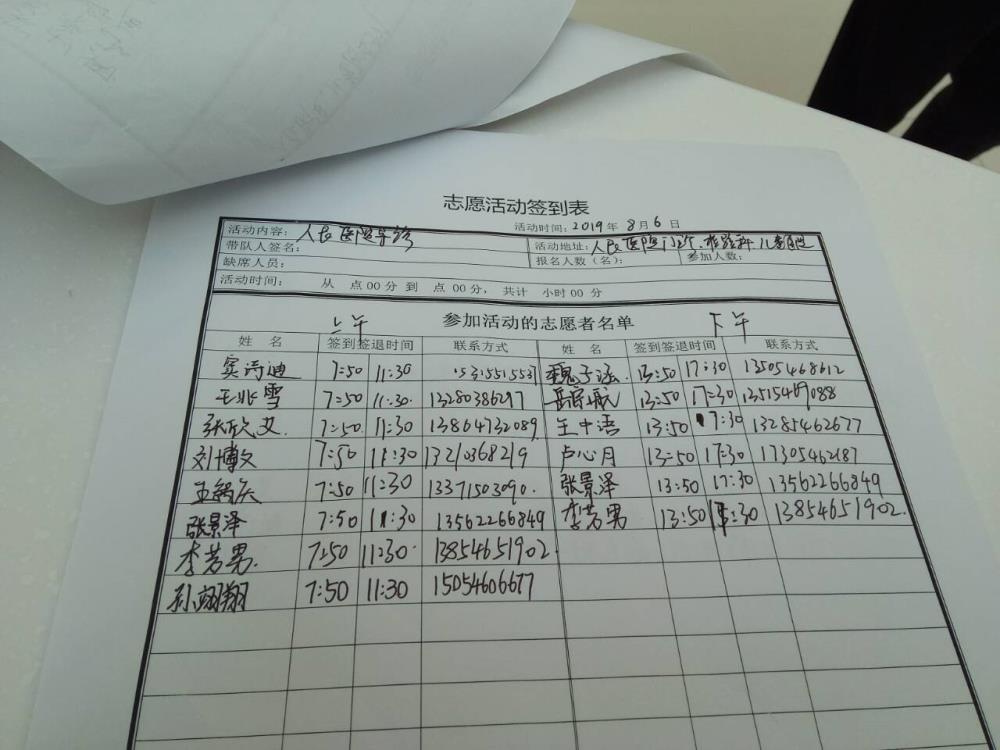 志愿活动签到表
活动时间：2019年 8月 6日
活动内容：人民医院导诊
活动地址：人民医院门诊、检验科
带队人签名：
缺席人员：
报名人数（名）： 参加人数：
活动时间： 从 点00分 到 点00分， 共计 小时00分
上午 参加活动的志愿者名单 下午
姓 名 签到签退时间 联系方式 姓 名 签到签退时间 联系方式
窦诗迪 7:50 11:30 15315515537 魏子涵 13:50 17:30 13505468612
王兆雪 7:50 11:30 13280386297 岳宗航 13:50 17:30 13515469088
张欣文 7:50 11:30 13864732089 王中语 13:50 17:30 13285462677
刘博文 7:50 11:30 13210368219 卢心月 13:50 17:30 17305462187
7:50 11:30 13371503090 张景泽 13:50 17:30 13562266849
张景泽 7:50 11:30 13562266849 李芳男 13:50 17:30 13854651902
李芳男 7:50 11:30 13854651902
孙翊翔 7:50 11:30 15054606677